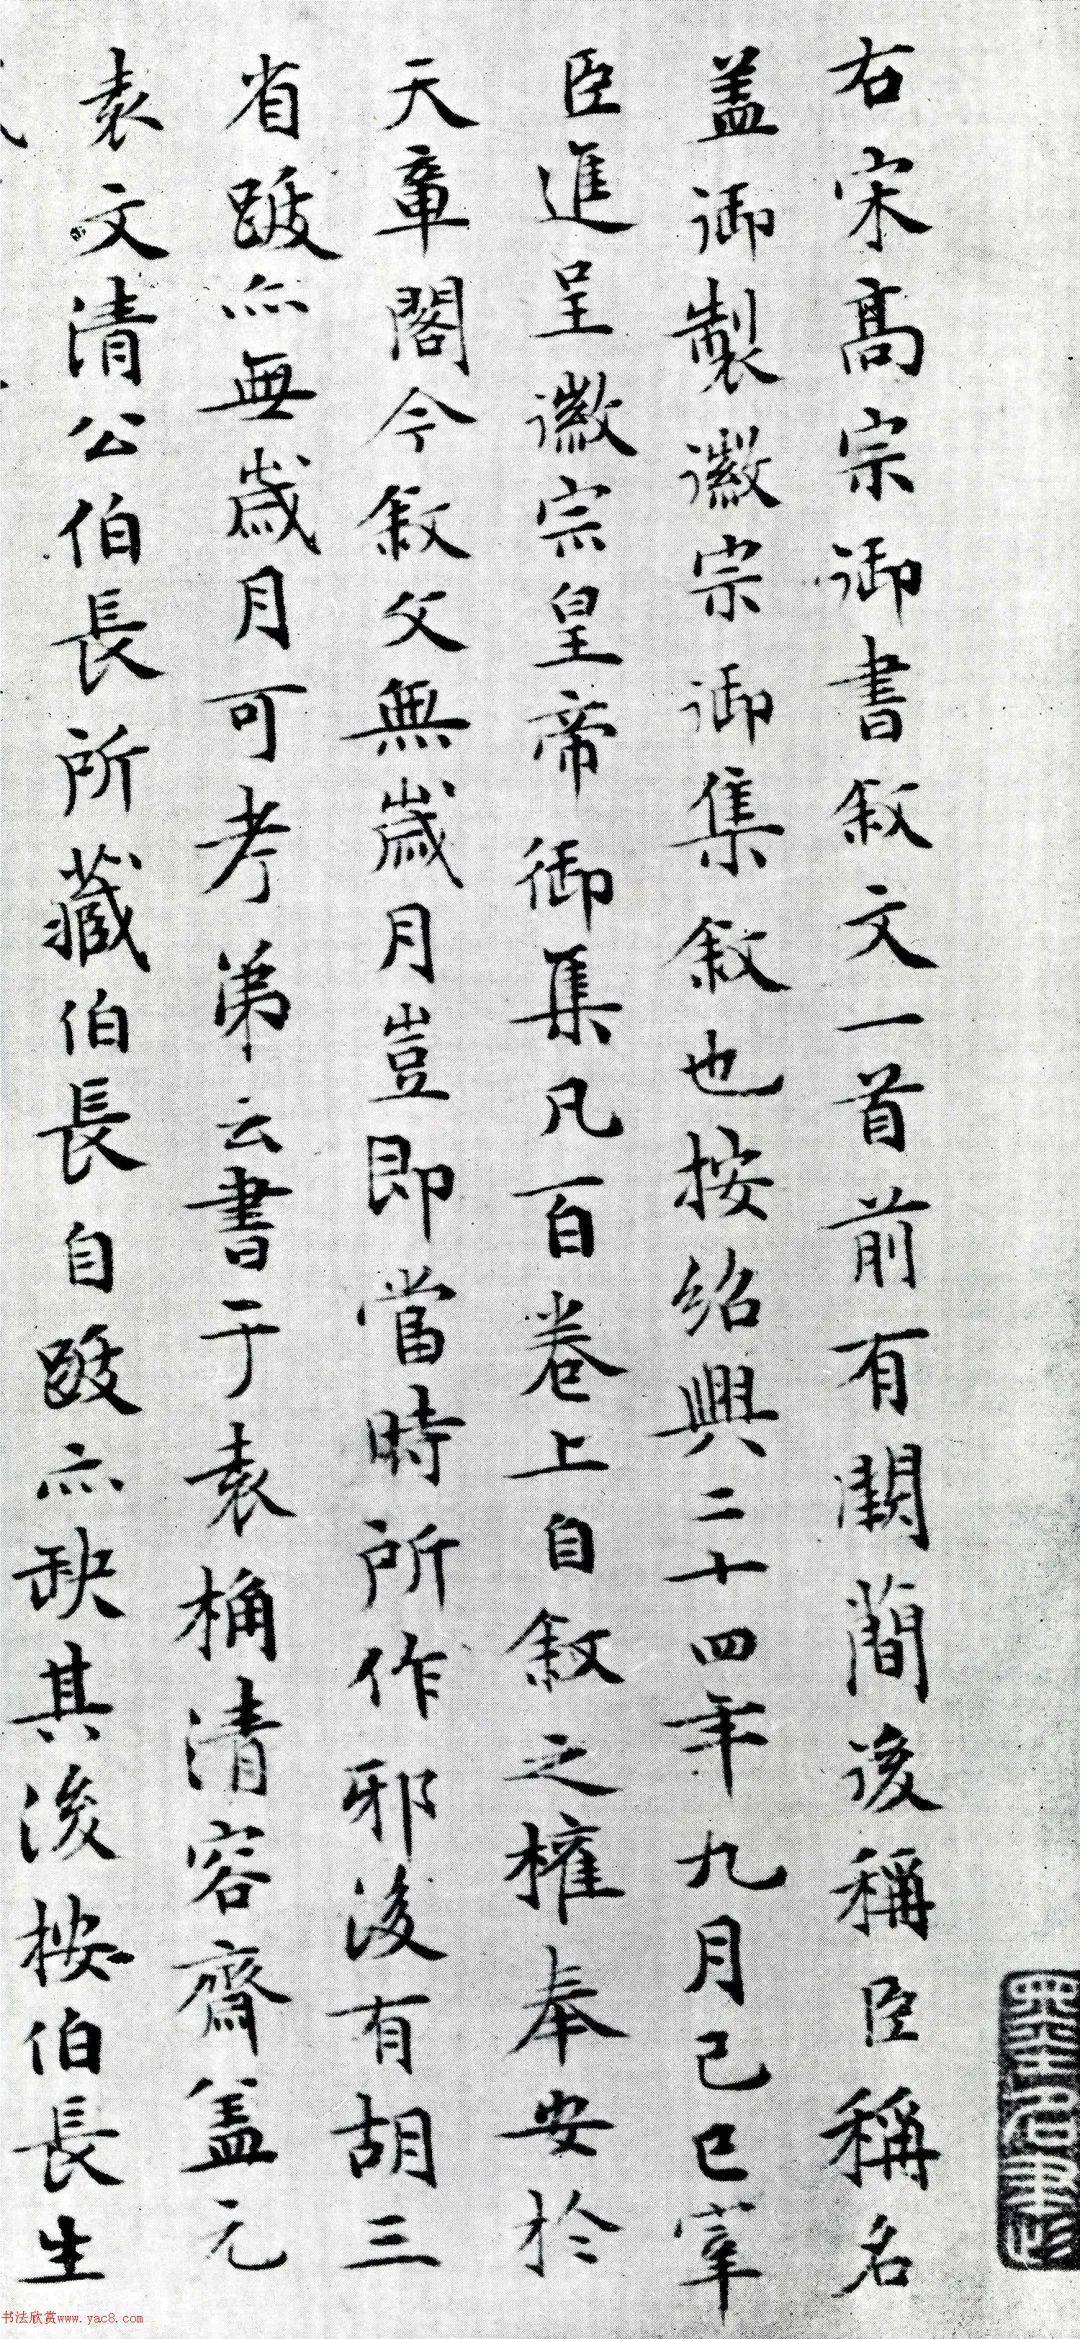 右宋高宗御書敘文一首前有闕簡後稱臣稱名
盖御製徽宗御集敘也按紹興二十四年九月己巳宰
臣進呈徽宗皇帝御集凡百卷上自敘之權奉安於
天章閣今敘文無歲月豈即當時所作邪後有胡三
省跋亦無歲月可考弟云書于袁桷清容齋盖元
袁文清公伯長所藏伯長自跋亦缺其後按伯長生
书法欣赏www.yac8.com